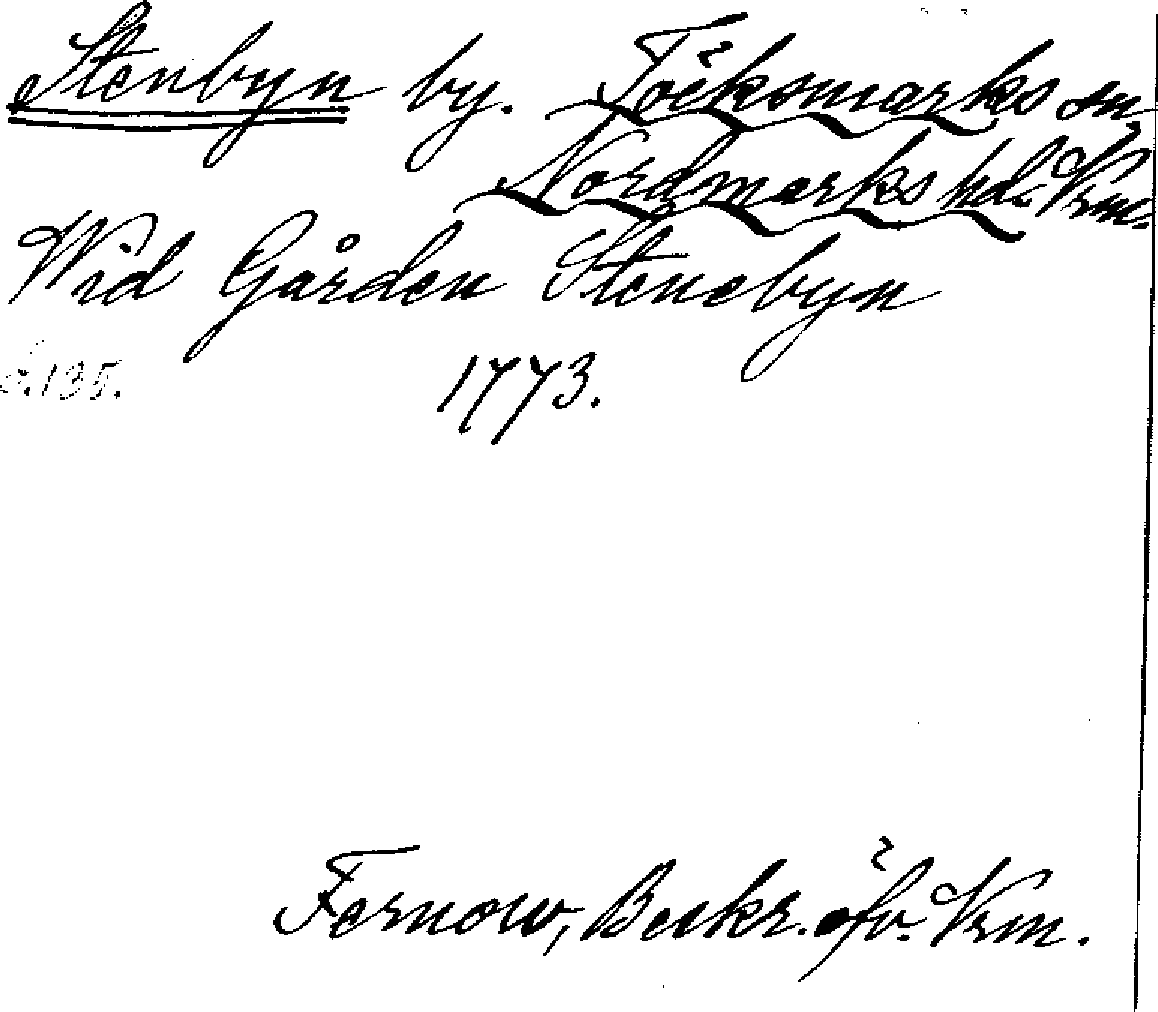 Stenbyn by. Töcksmarks sn,
Nordmarks hd. Vrm.
Wid Gården Stenebyn
s. 135. 1773.
Fernow, Beskr. öfv. Vrm.